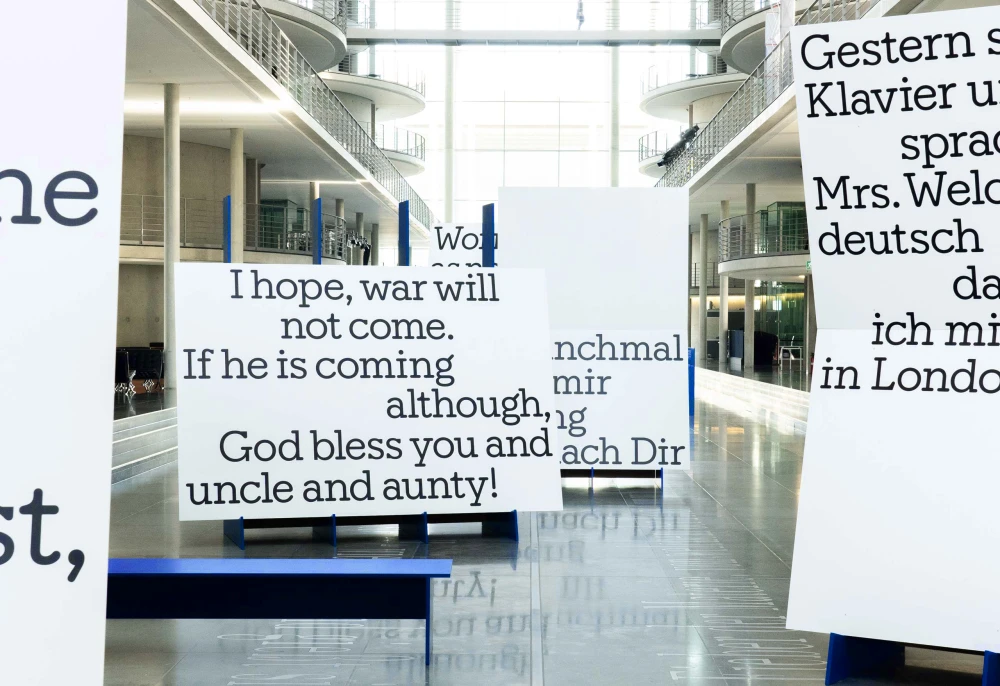 I hope, war will
not come.
If he is coming
although,
God bless you and
uncle and aunty!
mir
ach Dir
Gestern s
Klavier u
sprac
Mrs. Welc
deutsch
da
ich mi
in Londo